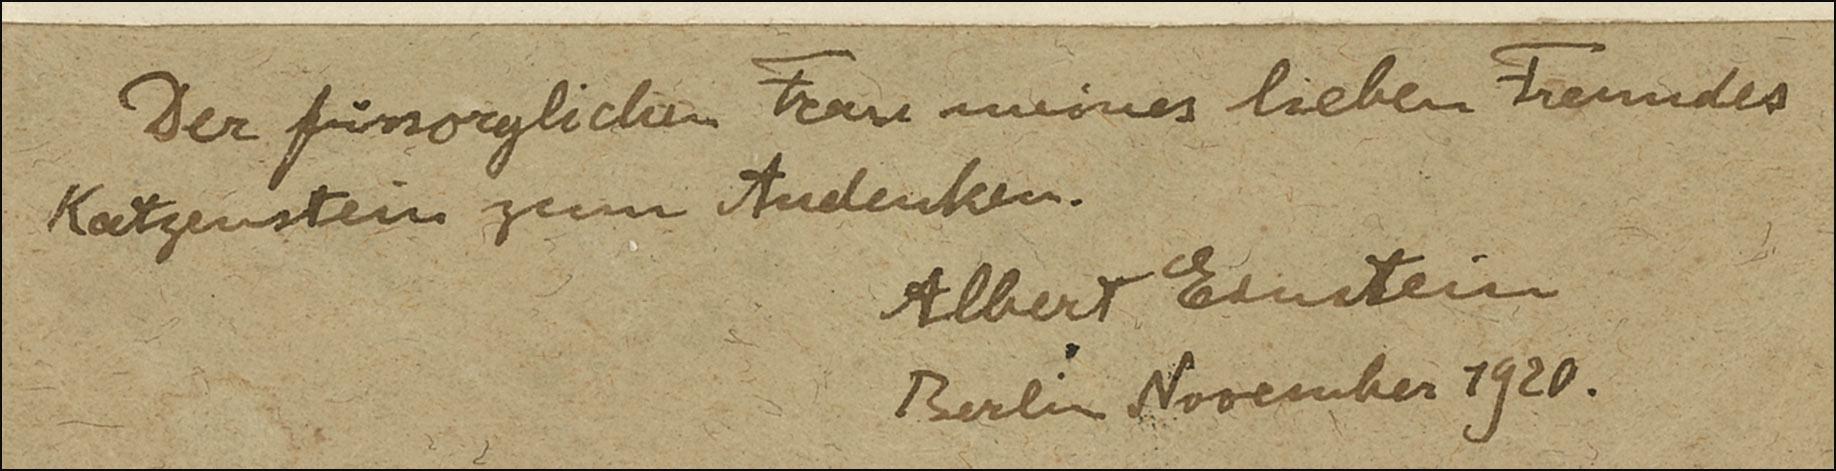 Der fürsorglichen Frau meines lieben Freundes
Katzenstein zum Andenken.
Albert Einstein
Berlin November 1920.